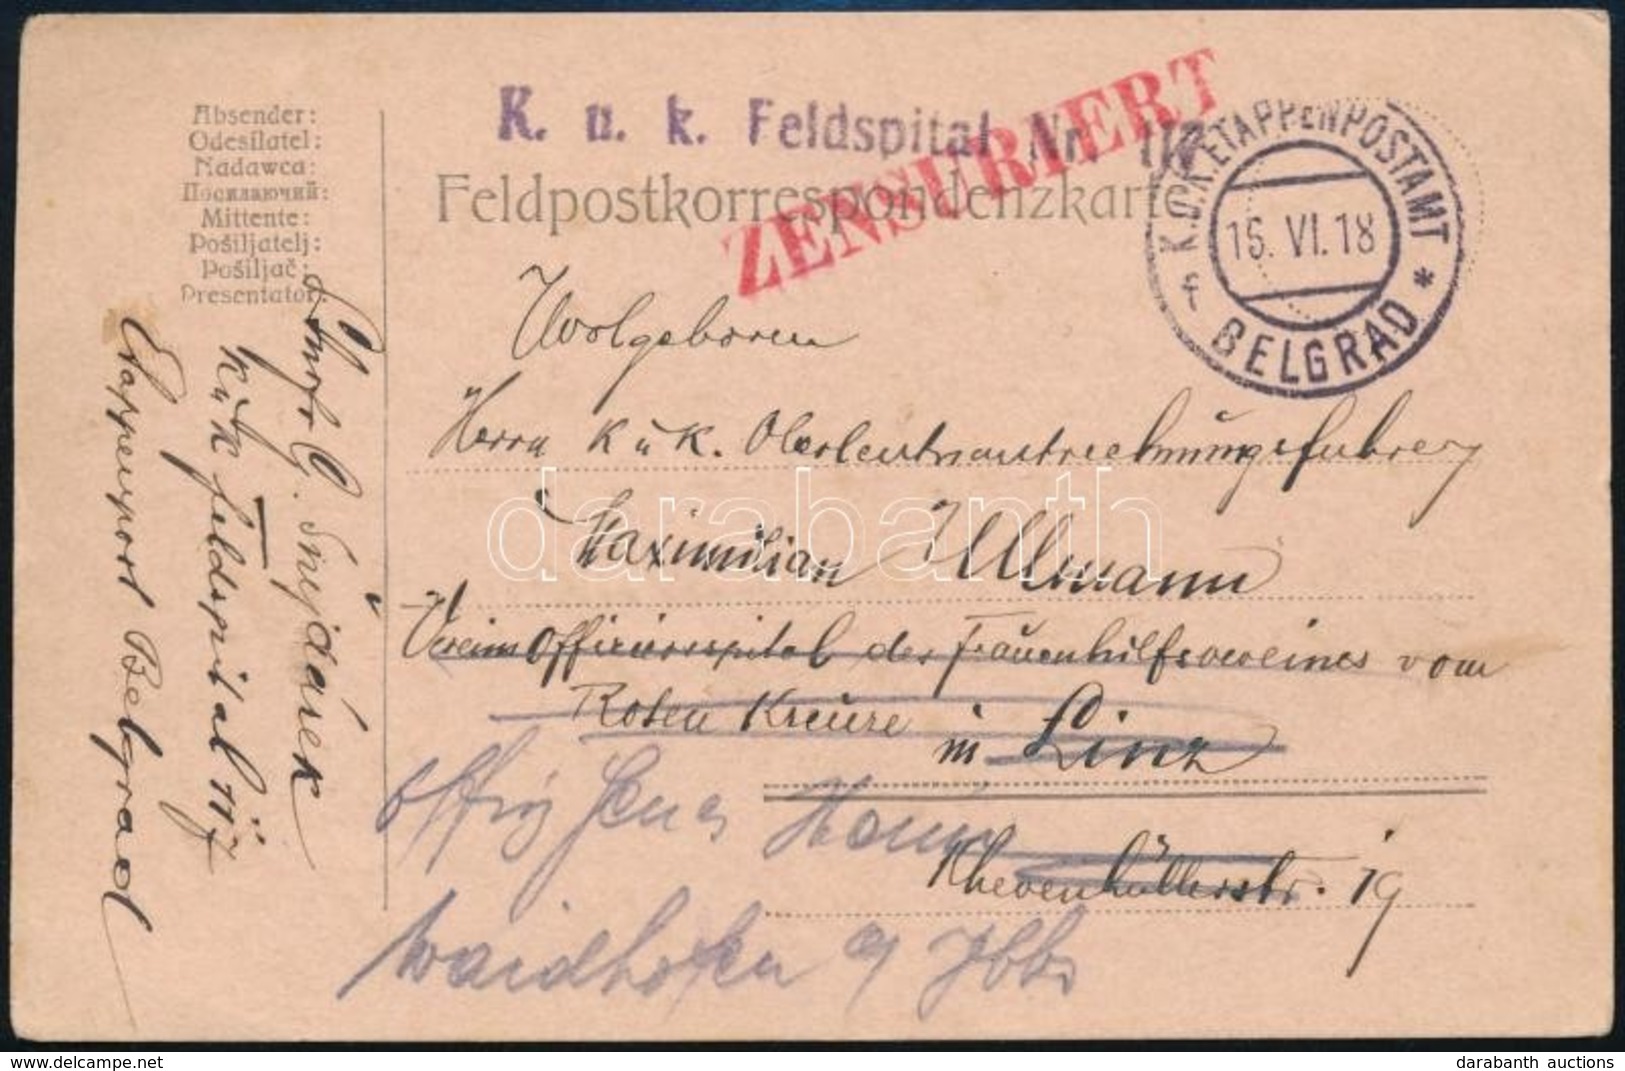 K. u. k. Feldspital Nr. 117
ZENSURIERT
Feldpostkorrespondenzkarte
K.U.K. ETAPPENPOSTAMT
16. VI. 18
f BELGRAD *
Absender:
Odesílatel:
Nadawca:
Посилаючий:
Mittente:
Pošiljatelj:
Pošiljač:
Presentator:
G. Šnejdárek
K u K feldspital 117
Etappenpost Belgrad
Wolgeboren
Herrn K u K. Oberleutnantrechnungsfuhrer
Maximilian Ullmann
Vereins Offizirsspital des Frauenhilfsvereines vom
Roten Kreuze in Linz
Khevenhüllerstr. 19
Waidhofen a/ Ybbs
darabanth
www.delcampe.net
darabanth auctions